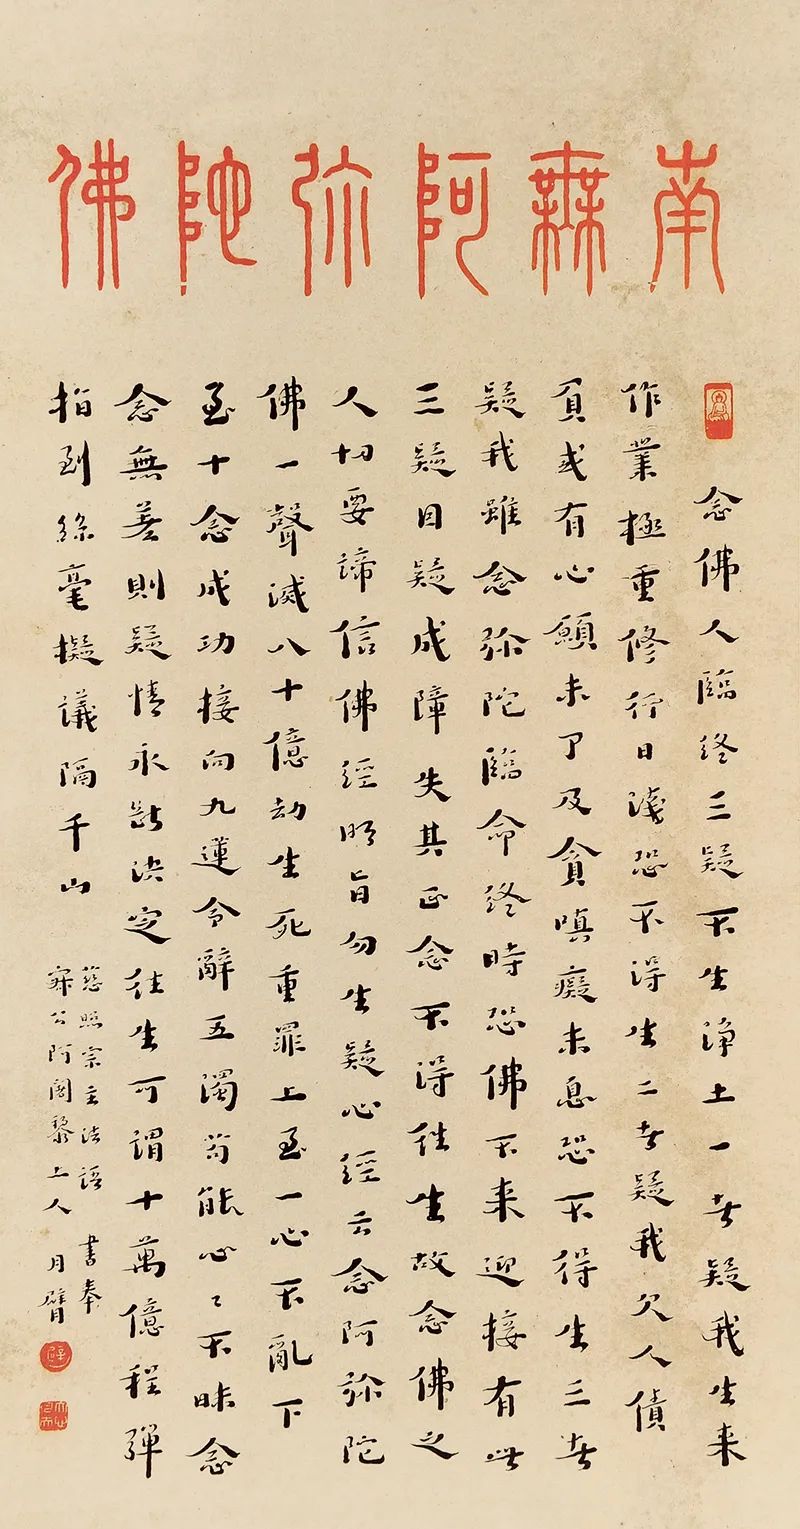 南無阿弥陀佛
念佛人臨终三疑不生浄土一者疑我生来
作業極重修行日淺恐不得生二者疑我欠人債
負或有心願未了及貪嗔癡未息恐不得生三者
疑我雖念弥陀臨命终時恐佛不来迎接有此
三疑因疑成障失其正念不得往生故念佛之
人切要諦信佛經明旨勿生疑心經云念阿弥陀
佛一聲滅八十億劫生死重罪上至一心不亂下
至十念成功接向九蓮令辭五濁苟能心〻不昧念
念無差則疑情永斷決定往生可謂十萬億程彈
指到絲毫擬議隔千山
慈照宗主法語 書奉
寂公阿闍黎上人 月臂